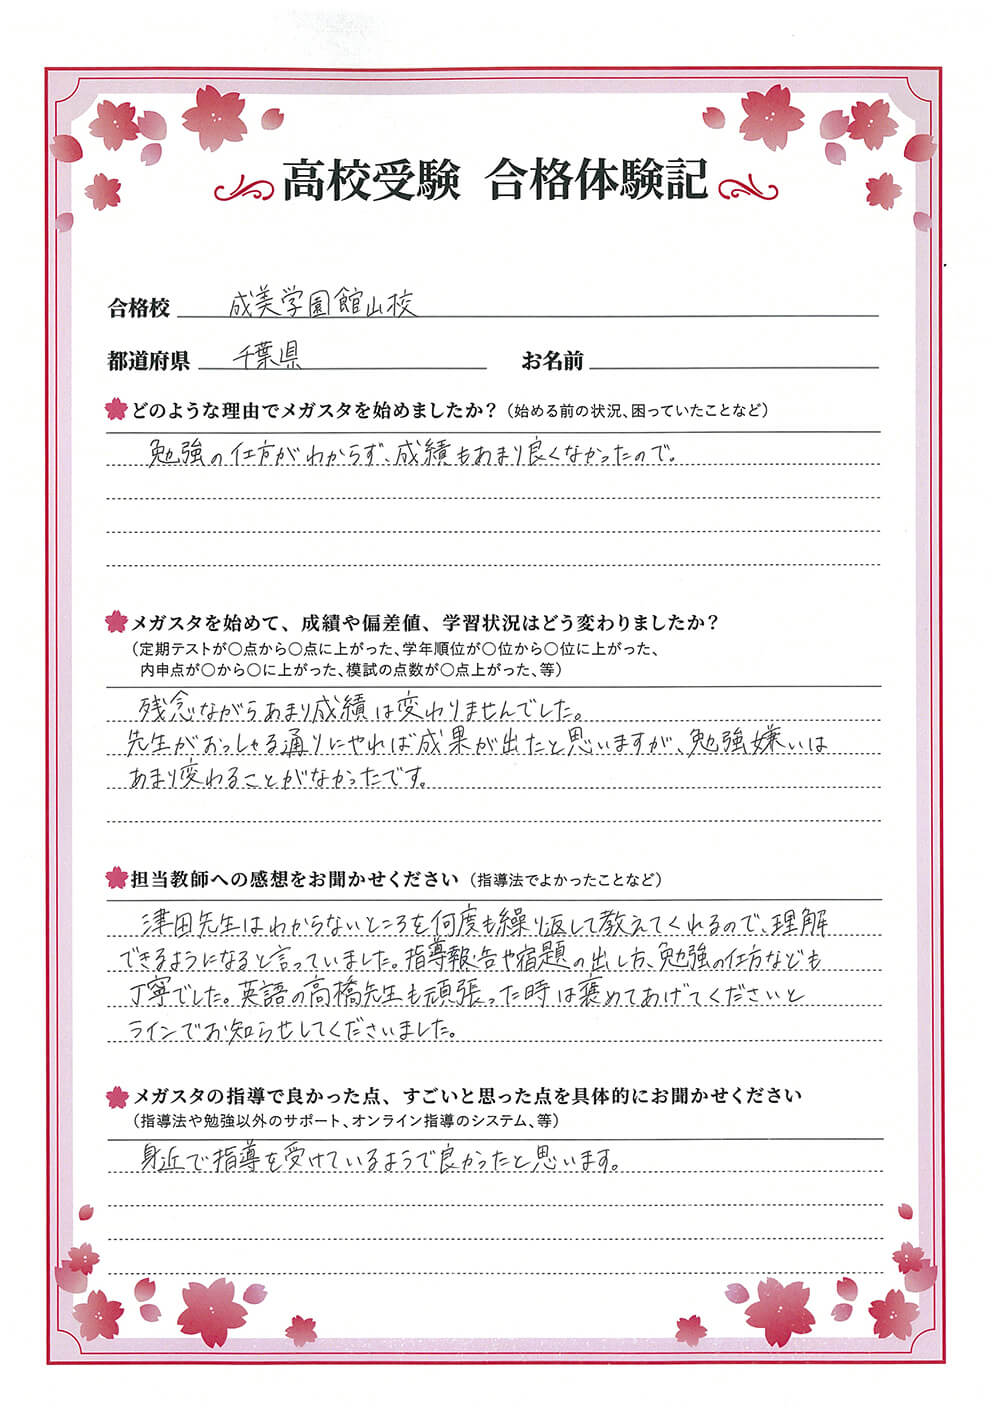 高校受験 合格体験記
合格校 成美学園館山校
都道府県 千葉県 お名前
どのような理由でメガスタを始めましたか？（始める前の状況、困っていたことなど）
勉強の仕方がわからず、成績もあまり良くなかったので。
メガスタを始めて、成績や偏差値、学習状況はどう変わりましたか？
（定期テストが〇点から〇点に上がった、学年順位が〇位から〇位に上がった、
内申点が〇から〇に上がった、模試の点数が〇点上がった、等）
残念ながらあまり成績は変わりませんでした。
先生がおっしゃる通りにやれば成果が出たと思いますが、勉強嫌いは
あまり変わることがなかったです。
担当教師への感想をお聞かせください（指導法でよかったことなど）
津田先生はわからないところを何度も繰り返して教えてくれるので、理解
できるようになると言っていました。指導報告や宿題の出し方、勉強の仕方なども
丁寧でした。英語の高橋先生も頑張った時は褒めてあげてくださいと
ラインでお知らせしてくださいました。
メガスタの指導で良かった点、すごいと思った点を具体的にお聞かせください
（指導法や勉強以外のサポート、オンライン指導のシステム、等）
身近で指導を受けているようで良かったと思います。